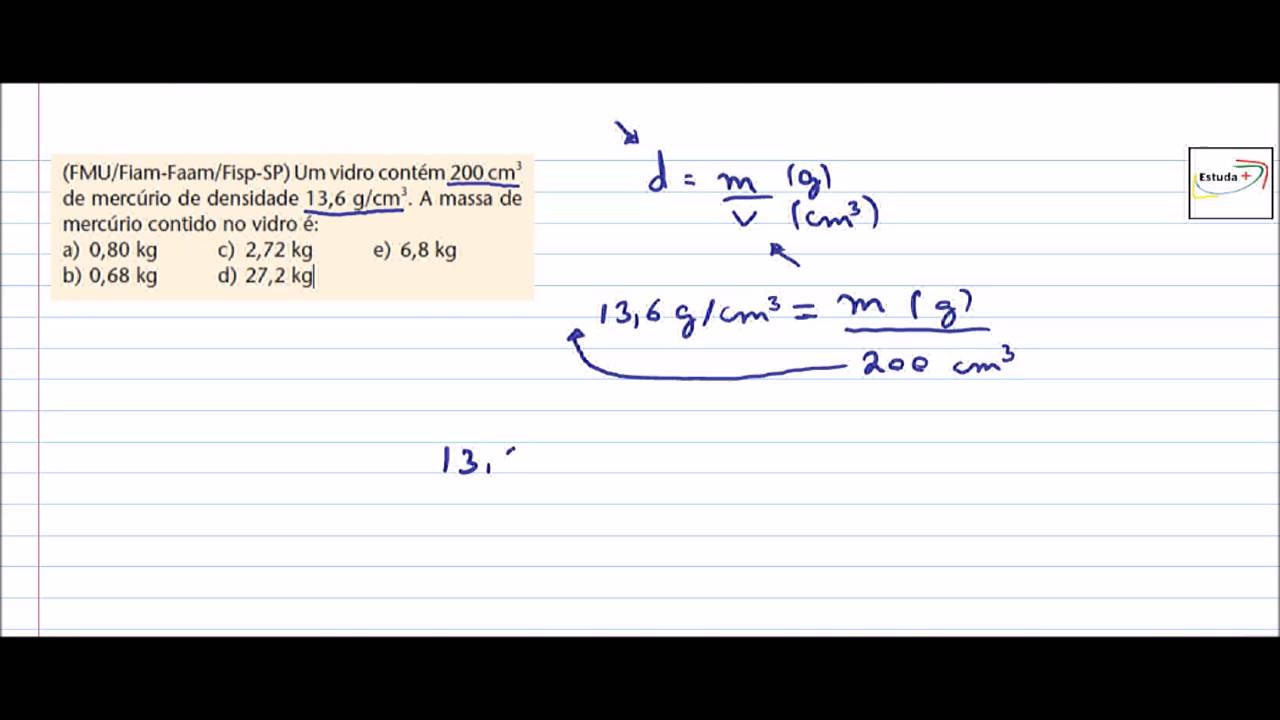 (FMU/Fiam-Faam/Fisp-SP) Um vidro contém 200 cm³
de mercúrio de densidade 13,6 g/cm³. A massa de
mercúrio contido no vidro é:
a) 0,80 kg c) 2,72 kg e) 6,8 kg
b) 0,68 kg d) 27,2 kg
d = m (g)
v (cm³)
13,6 g/cm³ = m (g)
200 cm³
13,
Estuda +